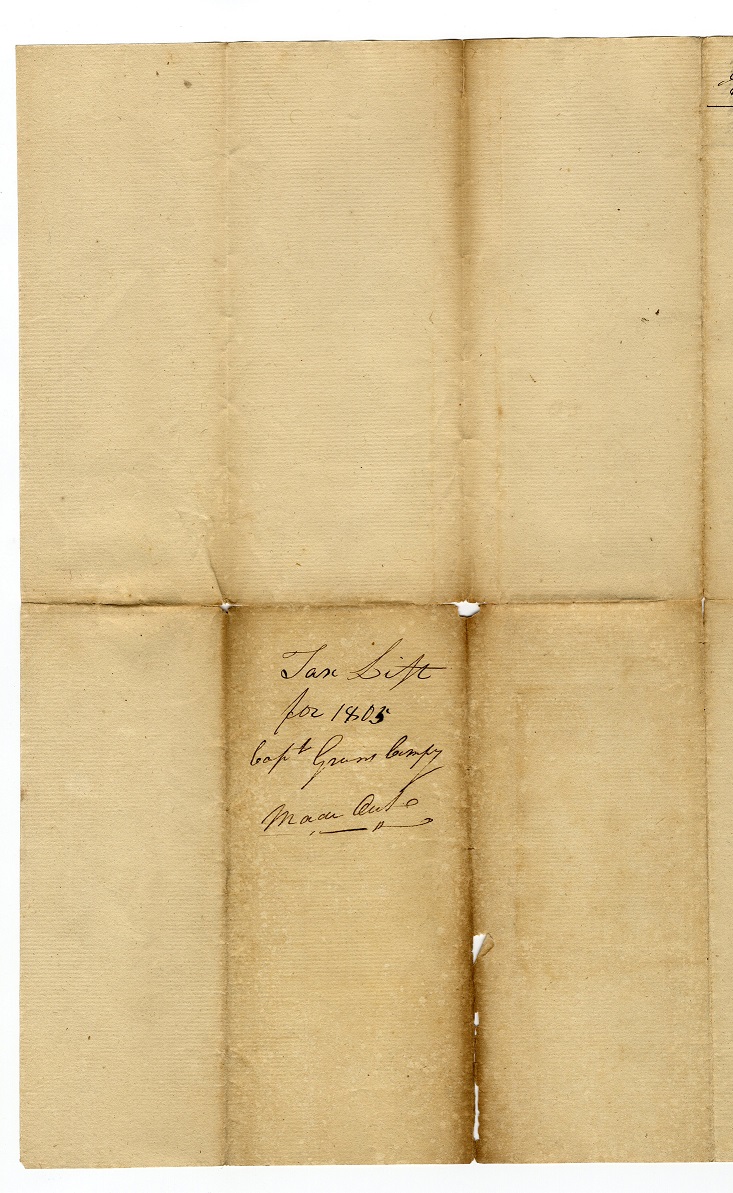 Tax List
for 1805
Capt Compy
Made Out